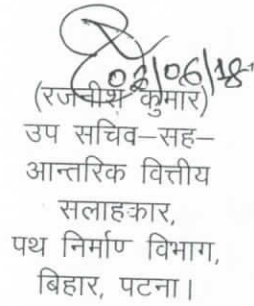 02/06/18
(रजनीश कुमार)
उप सचिव–सह–
आन्तरिक वित्तीय
सलाहकार,
पथ निर्माण विभाग,
बिहार, पटना।